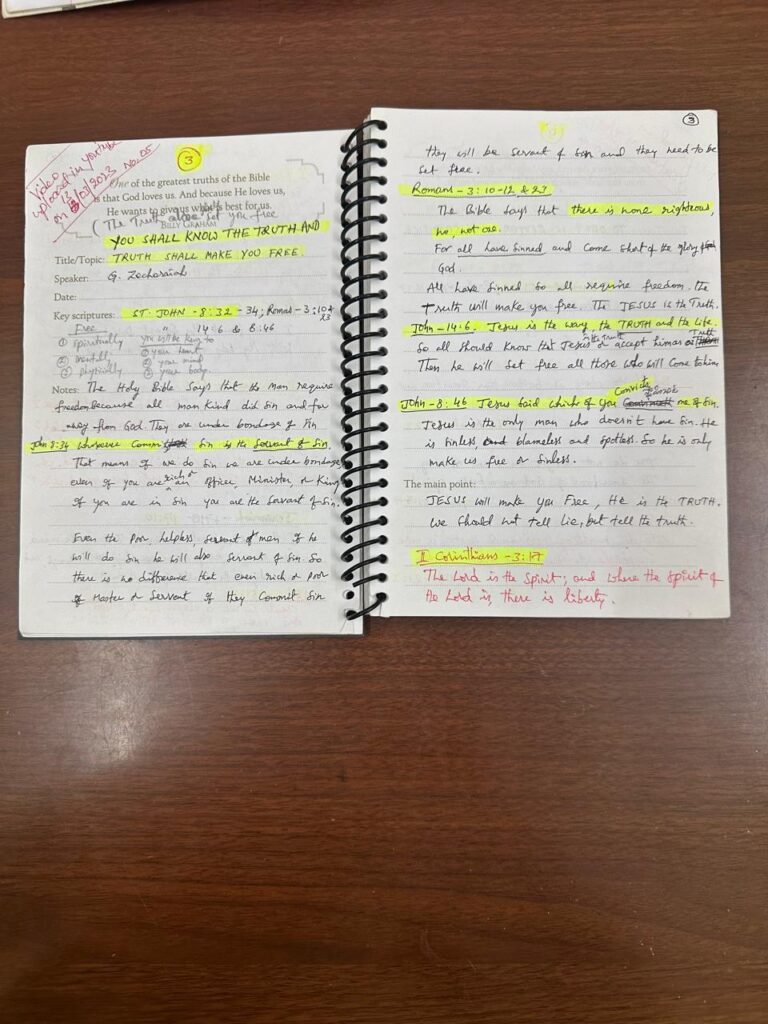 Video
uploaded in youtube
on 03/2023 No. 05
3
One of the greatest truths of the Bible
is that God loves us. And because He loves us,
He wants to give us what's best for us.
(The Truth alone set you free
BILLY GRAHAM
YOU SHALL KNOW THE TRUTH AND
Title/Topic: TRUTH SHALL MAKE YOU FREE.
Speaker: G. Zechoraiah
Date:
Key scriptures: ST. JOHN - 8:32 - 34; Romas - 3:10 &
23
Free " 14:6 & 8:46
① spiritually you is the key to
② mentally ① your heart
③ physically ② your mind
③ your body.
Notes: The Holy Bible Says that man require
freedom, because all man kind did Sin and far
away from God. They are under bondage of Sin
John 8:34 Whosever Commi Sin is the Servant of Sin.
That means if we do Sin we are under bondage
even if you are rich or an officer, Minister, or King
if you are in Sin you are the Servant of Sin.
Even the Poor helpless Servant man if he
will do Sin he will also Servant of Sin. So
there is no difference that even rich or poor
or Master or Servant if they Commit Sin
3
they will be servant of Sin and they need to be
set free.
Romans - 3:10-12 & 23
The Bible Says that there is none righteous,
no, not one.
For all have Sinned and Come Short of the glory of
God.
All have Sinned So all require freedom. the
Truth will make you free. The JESUS is the Truth.
John - 14:6. Jesus is the way, the TRUTH and the Life.
So all should know that Jesus is the Truth & accept him as Truth
Then he will set free all those who will come to him
John - 8:46 Jesus Said which of you Convicts me of Sin.
Jesus is the only man who doesn't have Sin. He
is Sinless, blameless and Spotless. So he is only
make us free or Sinless.
The main point:
JESUS will make you Free, He is the TRUTH.
we should not tell lie, but tell the truth.
II Corinthians - 3:17
The Lord is the Spirit; and where the Spirit of
the Lord is, there is liberty.